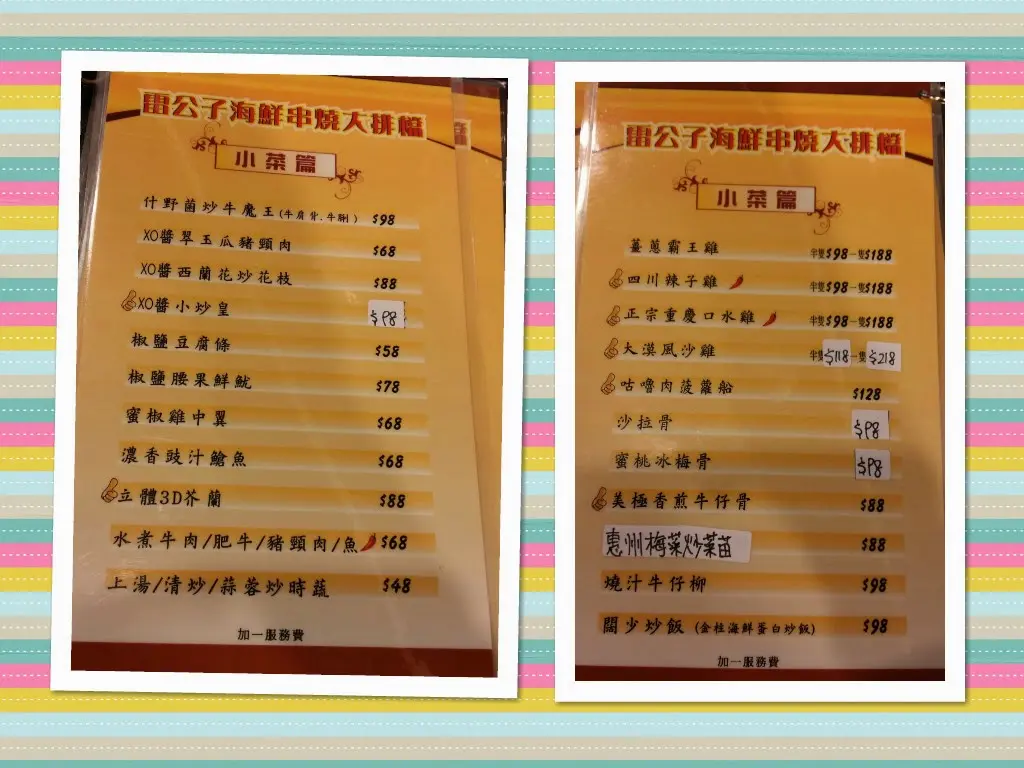 雷公子海鮮串燒大排檔
小菜篇
什野菌炒牛魔王(牛肩骨.牛脷) $98
XO醬翠玉瓜豬頸肉 $68
XO醬西蘭花炒花枝 $88
XO醬小炒皇 $98
椒鹽豆腐條 $58
椒鹽腰果鮮魷 $78
蜜椒雞中翼 $68
濃香豉汁鯧魚 $68
立體3D芥蘭 $88
水煮牛肉/肥牛/豬頸肉/魚 $68
上湯/清炒/蒜蓉炒時蔬 $48
加一服務費
雷公子海鮮串燒大排檔
小菜篇
薑蔥霸王雞 半隻$98-隻$188
四川辣子雞 半隻$98-隻$188
正宗重慶口水雞 半隻$98-隻$188
大漠風沙雞 半隻$118-隻$218
咕嚕肉菠蘿船 $128
沙拉骨 $98
蜜桃冰梅骨 $98
美極香煎牛仔骨 $88
惠州梅菜炒菜苗 $88
燒汁牛仔柳 $98
闊少炒飯 (金柱海鮮蛋白炒飯) $98
加一服務費